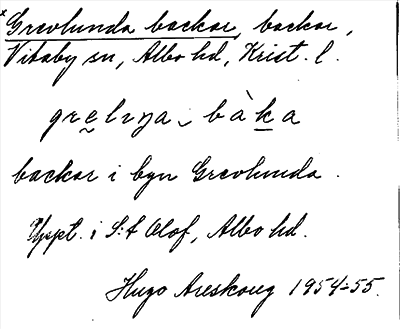 Grevlunda backar, backar,
Vitaby sn, Albo hd, Krist. l.
grelıŋa bàka
backar i byn Grevlunda.
Uppt. i S:t Olof, Albo hd.
Hugo Areskoug 1954-55.